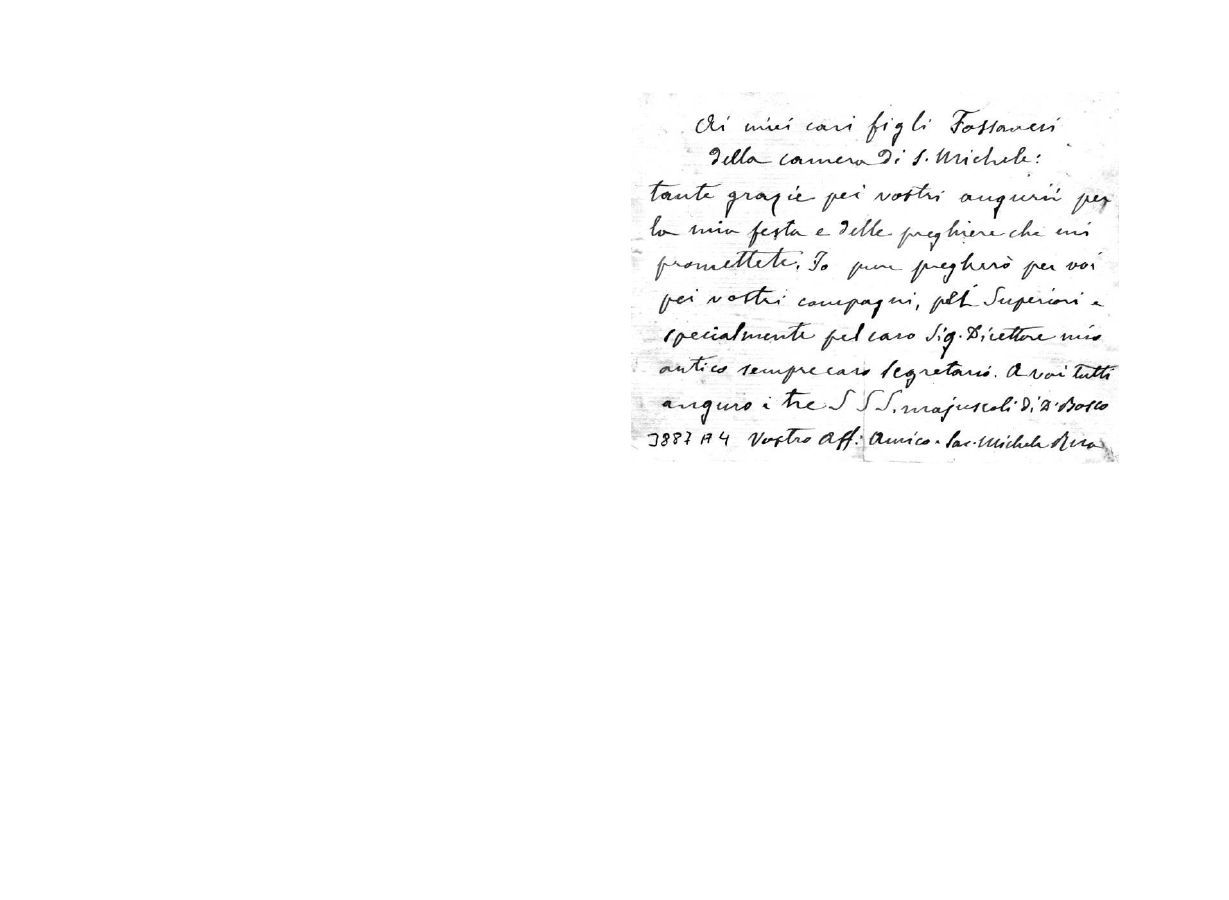 Ai miei cari figli Fossanesi
della camera di S. Michele:
tante grazie pei vostri augurii per
la mia festa e delle preghiere che mi
promettete. Io pure pregherò per voi
pei vostri compagni, pei Superiori e
specialmente pel caro Sig. Direttore mio
antico sempre caro Segretario. A voi tutti
auguro i tre S S S. majuscoli di D. Bosco
3887 A 4 Vostro Aff: Amico. Sac. Michele Rua